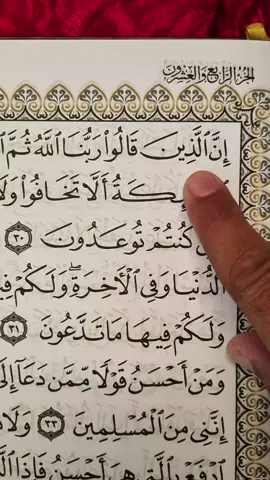 الجزء الرابع والعشرون
إِنَّ ٱلَّذِينَ قَالُوا۟ رَبُّنَا ٱللَّهُ ثُمَّ
أَلَّا تَخَافُوا۟ وَلَا
كُنتُمْ تُوعَدُونَ ٣٠
ٱلدُّنْيَا وَفِى ٱلْـَٔاخِرَةِ ۖ وَلَكُمْ
وَلَكُمْ فِيهَا مَا تَدَّعُونَ ٣١
وَمَنْ أَحْسَنُ قَوْلًا مِّمَّن دَعَآ إِلَى
إِنَّنِى مِنَ ٱلْمُسْلِمِينَ ٣٣
ٱدْفَعْ بِٱلَّتِى هِىَ أَحْسَنُ فَإِذَا